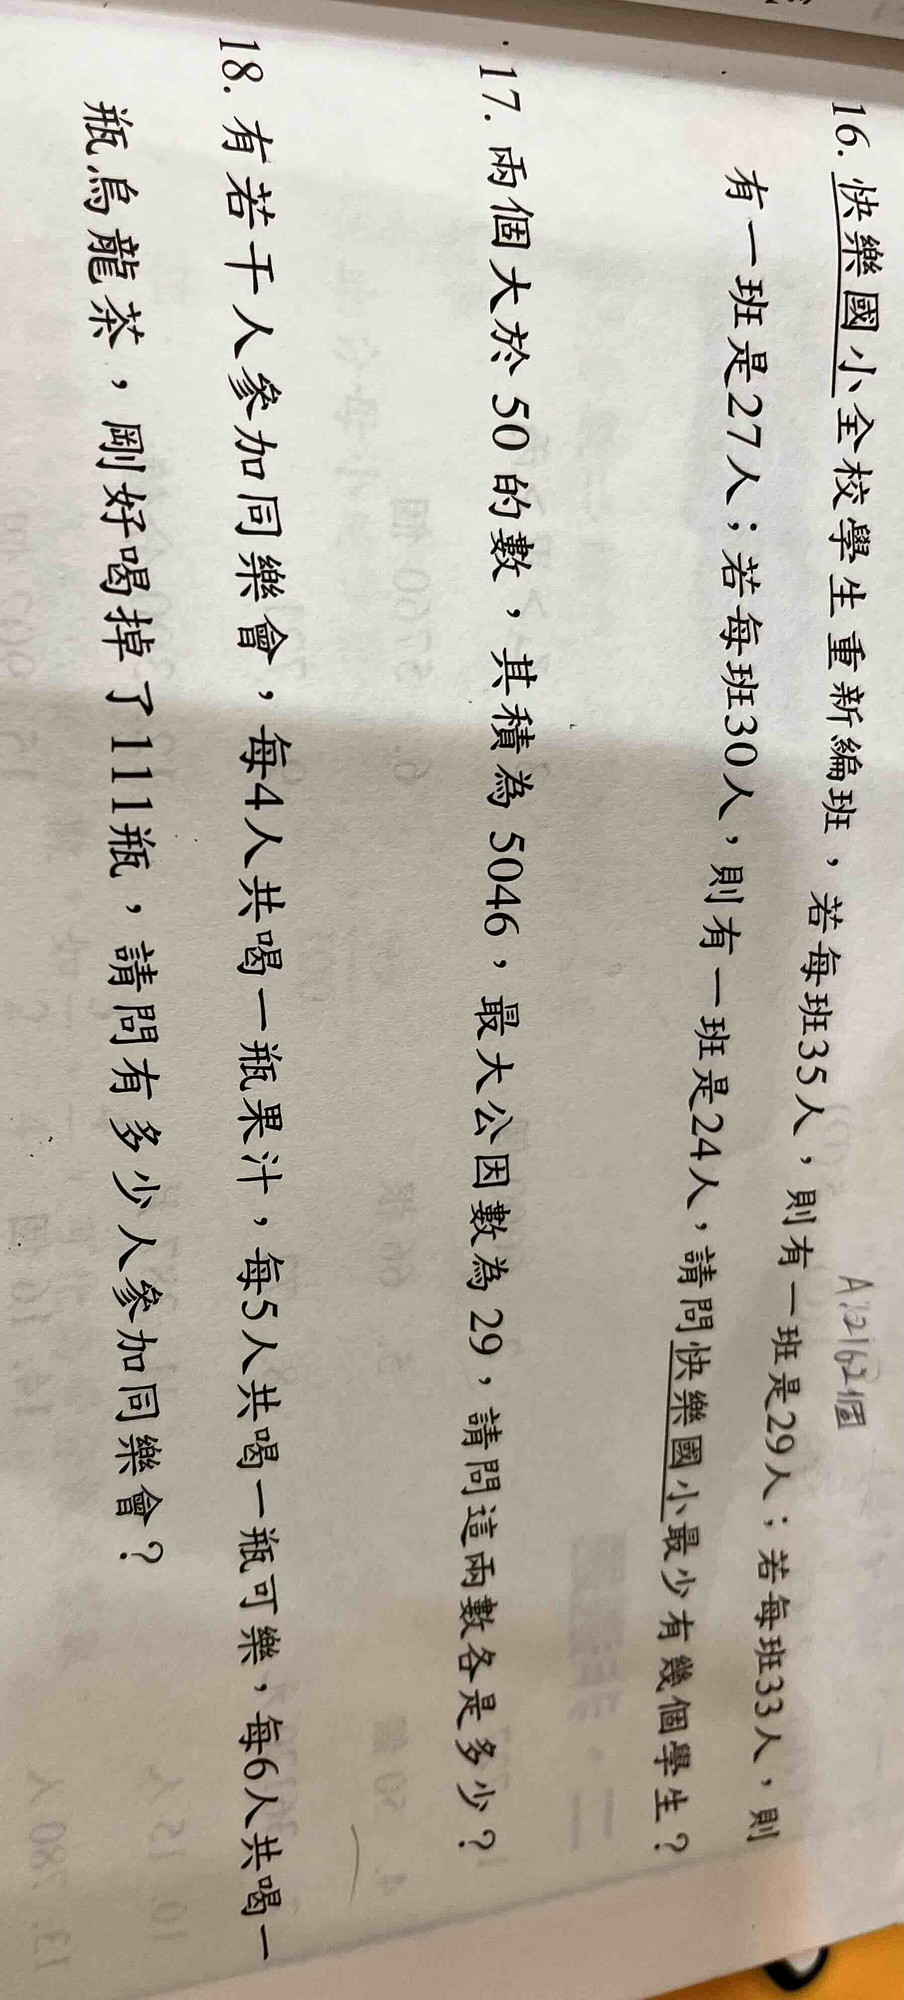 16. 快樂國小全校學生重新編班，若每班35人，則有一班是29人；若每班33人，則
有一班是27人；若每班30人，則有一班是24人，請問快樂國小最少有幾個學生？
17. 兩個大於 50 的數，其積為 5046，最大公因數為 29，請問這兩數各是多少？
18. 有若干人參加同樂會，每4人共喝一瓶果汁，每5人共喝一瓶可樂，每6人共喝一
瓶烏龍茶，剛好喝掉了111瓶，請問有多少人參加同樂會？